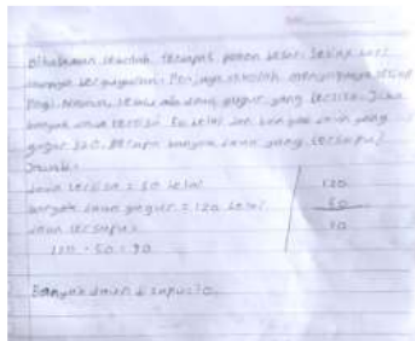 dihalaman sekolah terdapat pohon besar. setiap hari
daunnya berguguran. Penjaga sekolah menyapunya setiap
Pagi. Namun, selalu ada daun gugur yang tersisa. Jika
banyak daun tersisa 50 helai dan banyak daun yang
gugur 120. Berapa banyak daun yang tersapu?
Jawab:
daun tersisa = 50 helai
banyak daun gugur = 120 helai
daun tersapu =
120 - 50 = 70
120
50
70
Banyak daun tersapu = 70.